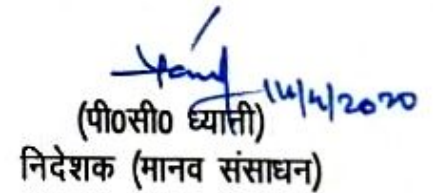 14/4/2020
(पी०सी० ध्यानी)
निदेशक (मानव संसाधन)